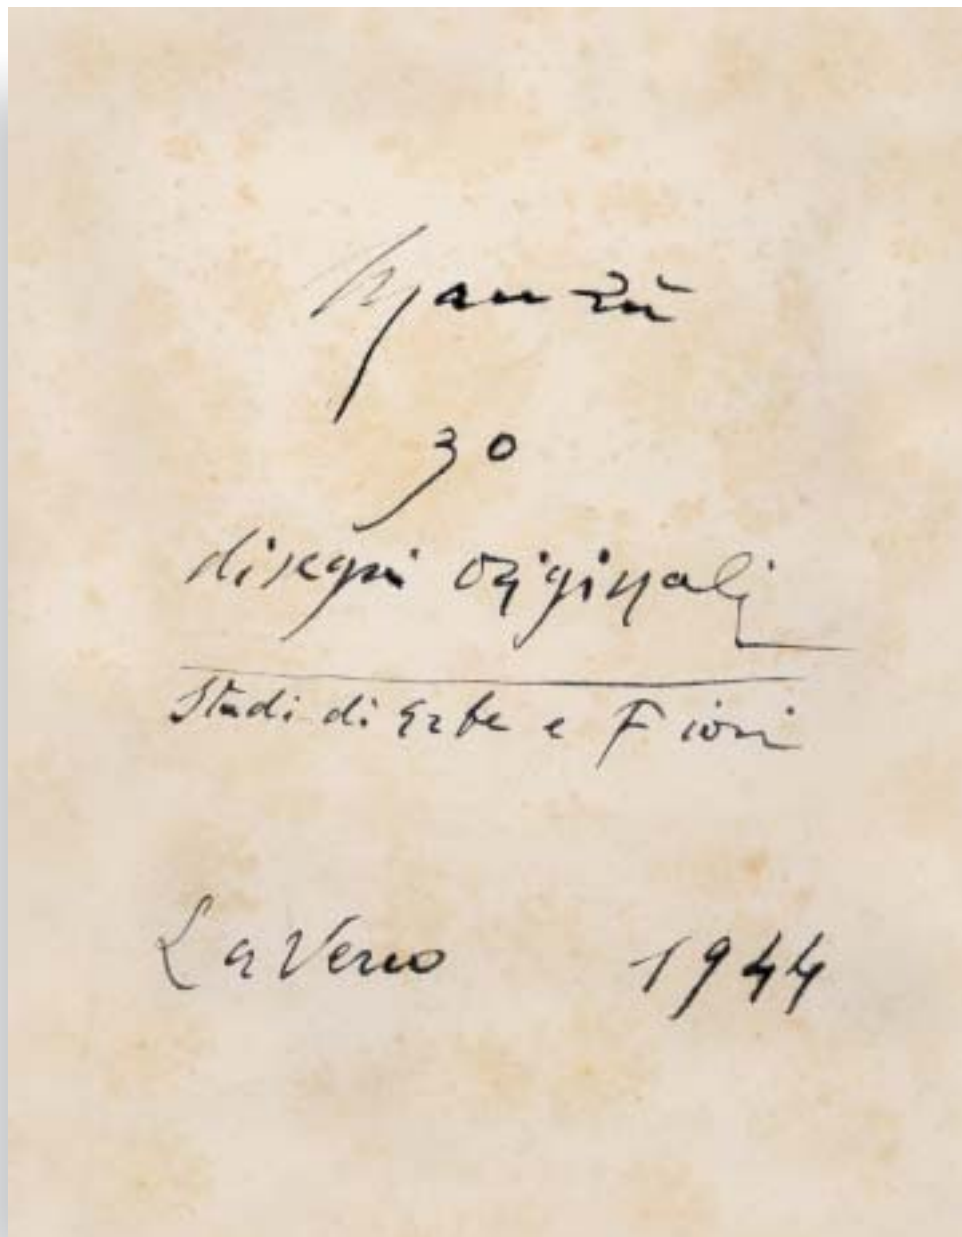 Manzù
30
disegni originali
Studi di Erbe e Fiori
LaVeno 1944